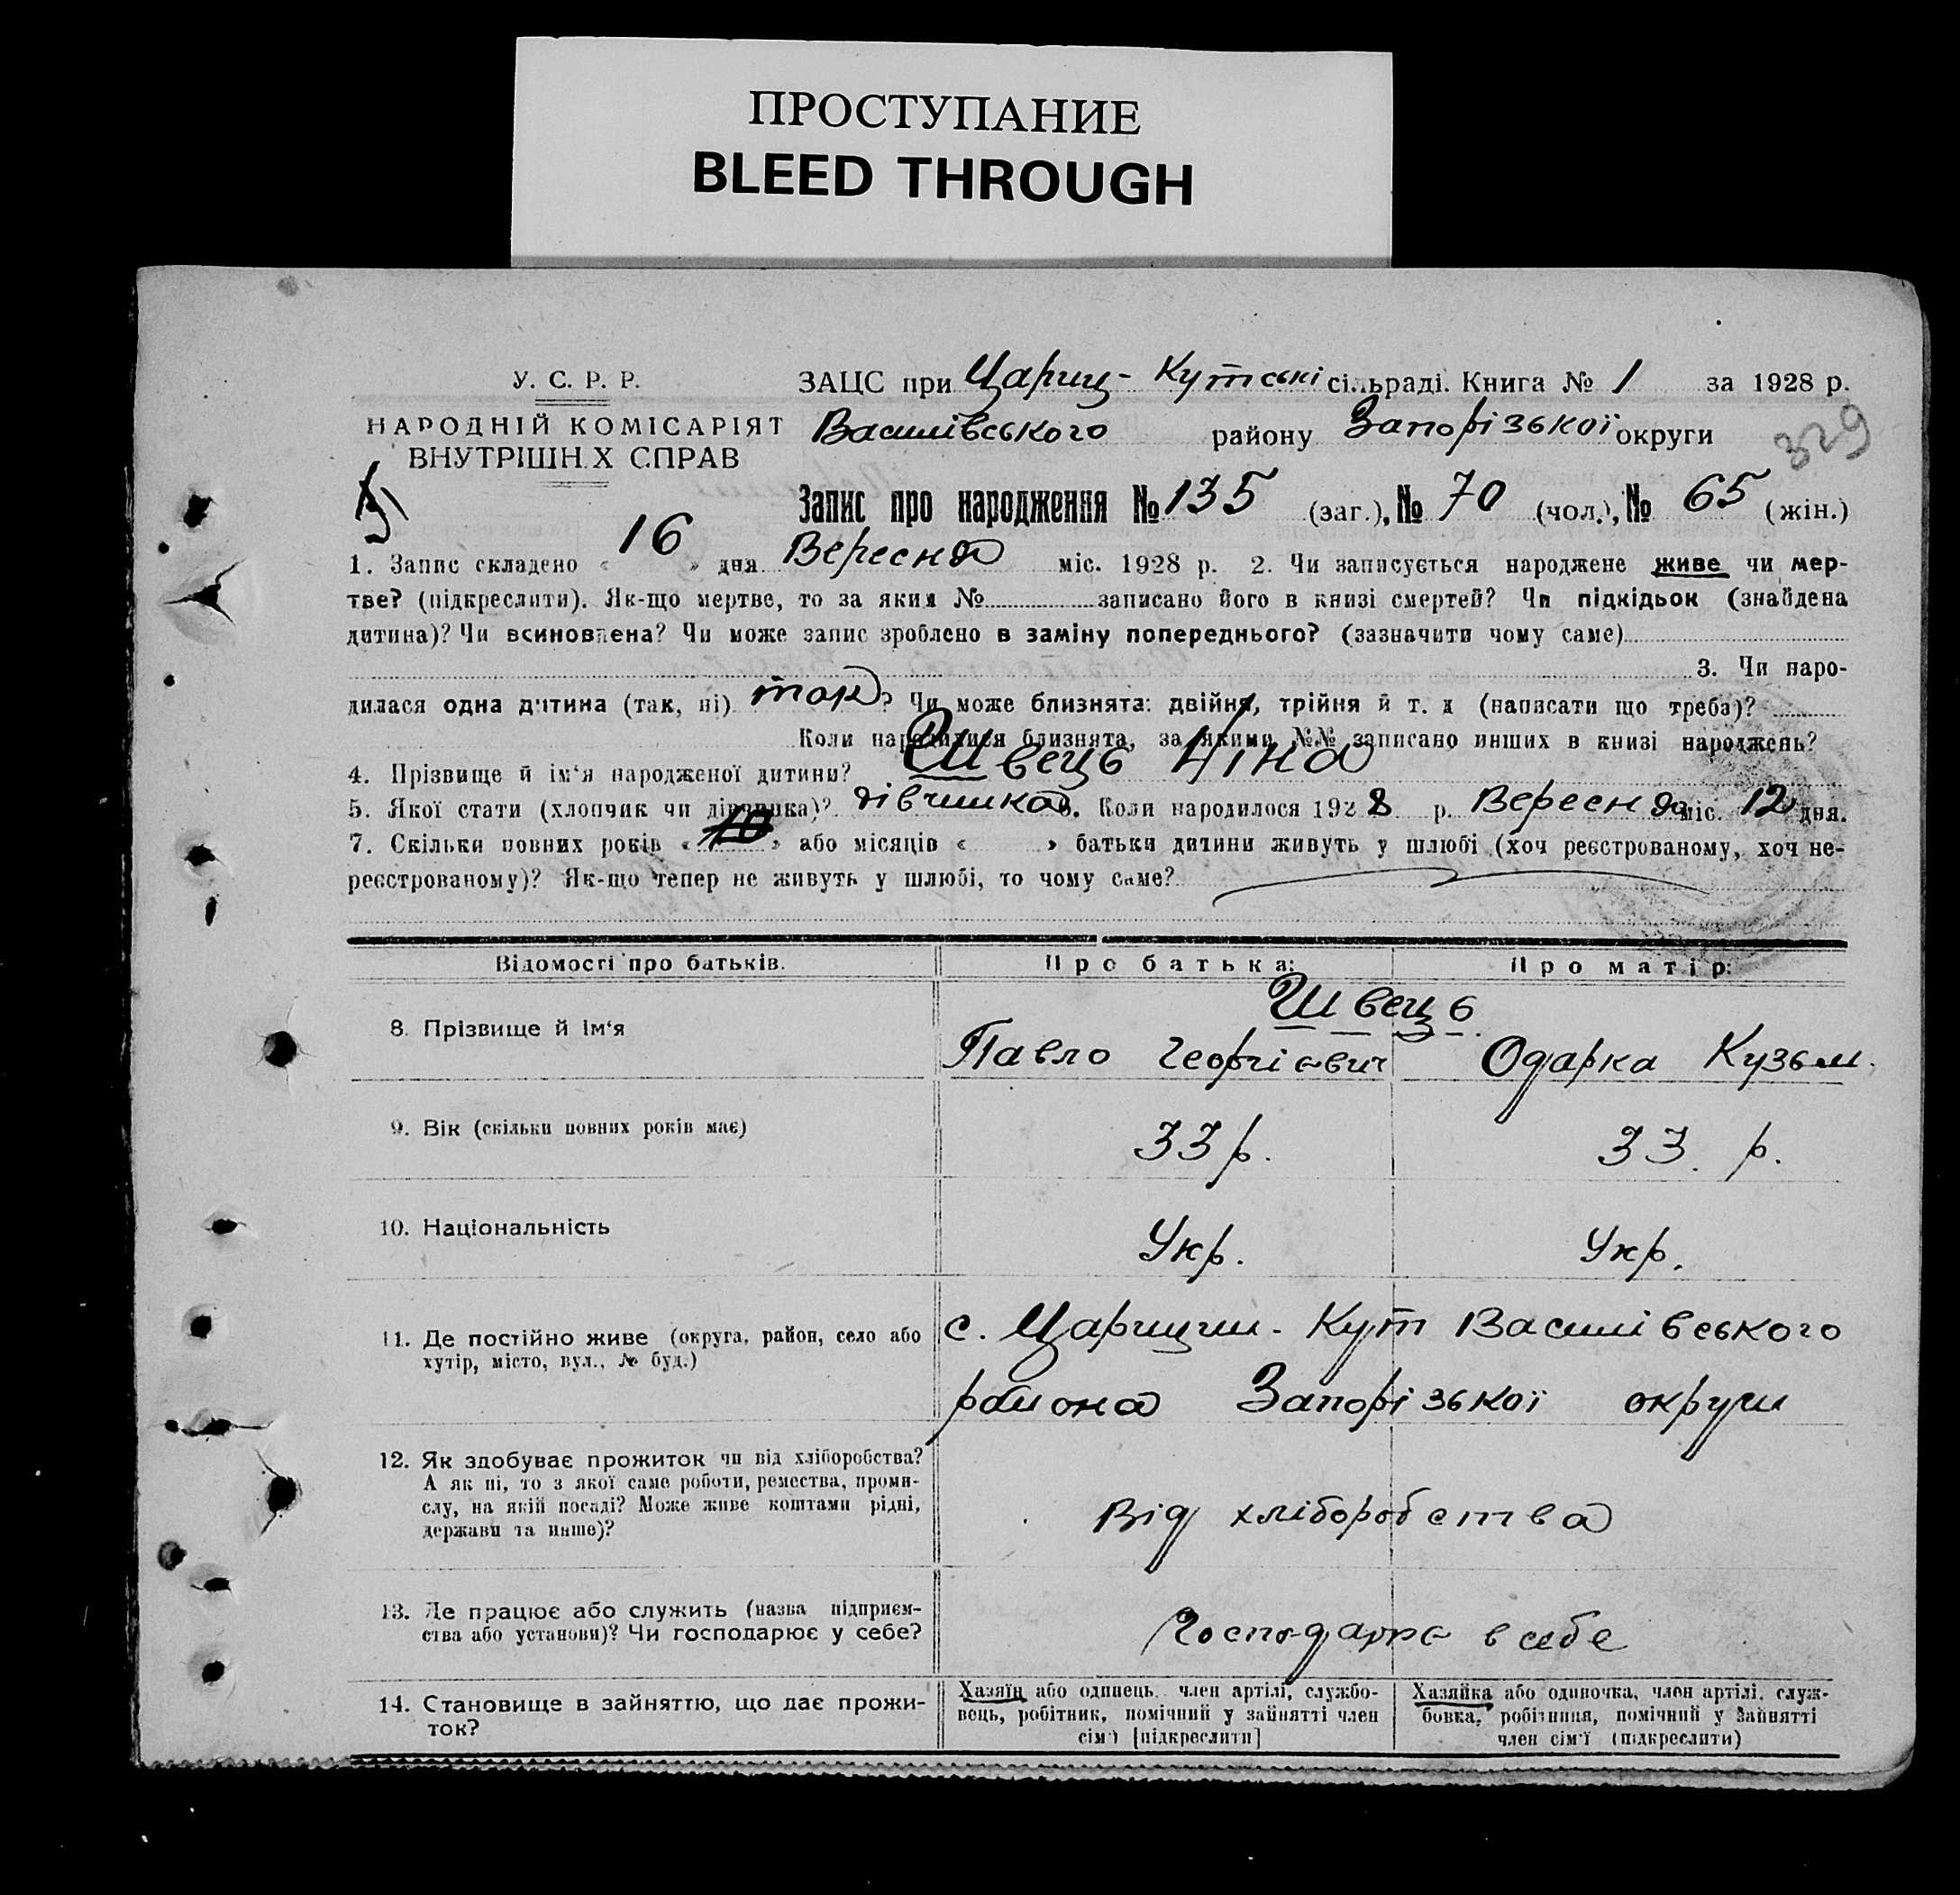 ПРОСТУПАНИЕ
BLEED THROUGH
У. С. Р. Р.
НАРОДНІЙ КОМІСАРІЯТ
ВНУТРІШН.Х СПРАВ
ЗАЦС при Цариц-Кутські сільраді. Книга № 1 за 1928 р.
Василівського району Запорізької округи
329
Запис про народження № 135 (заг.), № 70 (чол.), № 65 (жін.)
1. Запис складено « 16 » дня Вересня міс. 1928 р. 2. Чи записується народжене живе чи мер-
тве? (підкреслити). Як-що мертве, то за яким № записано його в книзі смертей? Чи підкідьок (знайдена
дитина)? Чи всиновлена? Чи може запис зроблено в заміну попереднього? (зазначити чому саме)
3. Чи наро-
дилася одна дитина (так, ні) так? Чи може близнята: двійня, трійня й т. д (написати що треба)?
Коли народилися близнята, за якими №№ записано инших в книзі народжень?
4. Прізвище й ім‘я народженої дитини? Швець Ніна
5. Якої стати (хлопчик чи дівчинка)? дівчинка 6. Коли народилося 1928 р. Вересня міс. 12 дня.
7. Скільки повних років « » або місяців « » батьки дитини живуть у шлюбі (хоч реєстрованому, хоч не-
реєстрованому)? Як-що тепер не живуть у шлюбі, то чому саме?
Відомості про батьків. Про батька: Про матір:
Швець
8. Прізвище й ім‘я Павло Георгієвич Одарка Кузьм.
9. Вік (скільки повних років має) 33 р. 33. р.
10. Національність Укр. Укр.
11. Де постійно живе (округа, район, село або
хутір, місто, вул., № буд.)
с. Царицин-Кут Василівського
района Запорізької округи
12. Як здобуває прожиток чи від хліборобства?
А як ні, то з якої саме роботи, ремества, проми-
слу, на якій посаді? Може живе коштами рідні,
держави та инше)?
Від хліборобства
13. Де працює або служить (назва підприєм-
ства або установи)? Чи господарює у себе?
Господарює в себе
14. Становище в зайняттю, що дає прожи-
ток?
Хазяїн або одинець. член артілі, службо-
вець, робітник, помічний у зайнятті член
сім'ї [підкреслити]
Хазяйка або одиночка, член артілі, служ-
бовка, робітниця, помічний у зайнятті
член сім'ї (підкреслити)